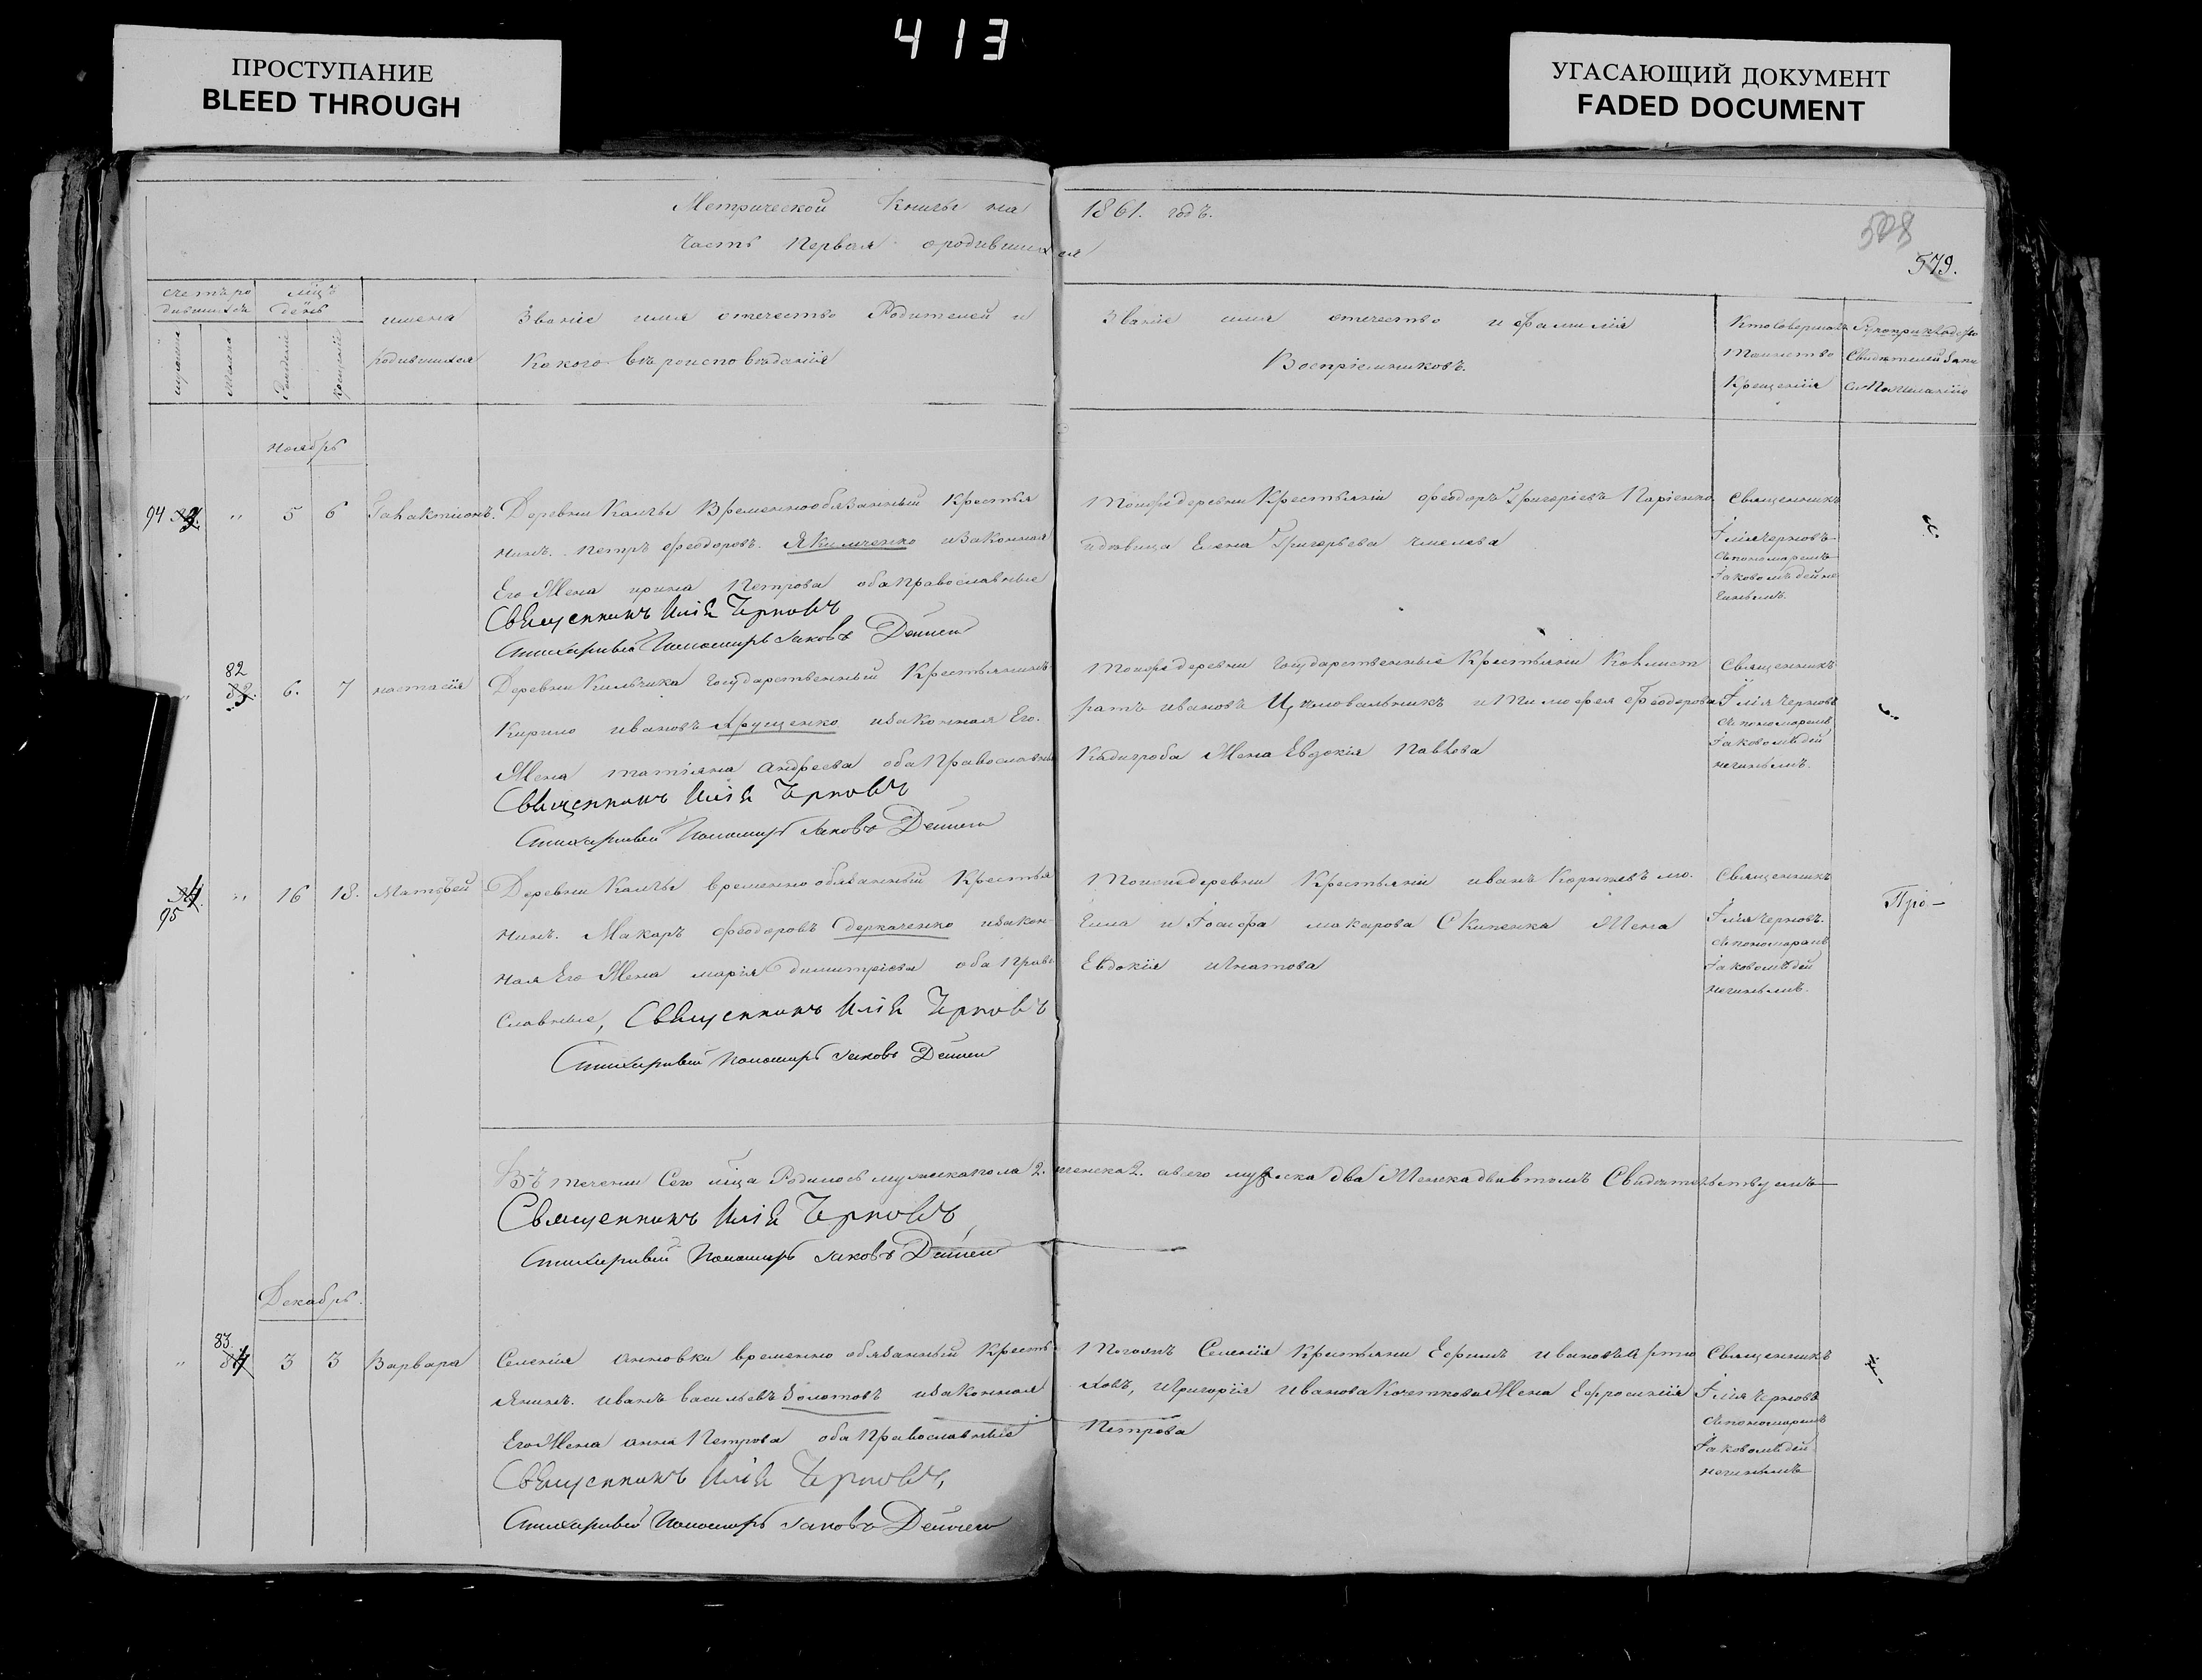 413
ПРОСТУПАНИЕ
BLEED THROUGH
УГАСАЮЩИЙ ДОКУМЕНТ
FADED DOCUMENT
Метрической Книги на 1861. годъ.
часть Первая ородившихся
508
579.
счетъ ро
дившихся
мцъ
день
имена
родившихся
Званіе имя отечество Родителей и
Какого вѣроисповѣданія
Званіе имя отечество ифамилія
Воспріемниковъ.
Ктосовершалъ
Таинство
Крещенія
Свидѣтелей запи
ноябрь
94 " 5 6 Галактионъ. Деревни Камчы Временнообязанный Крестья
нинъ. Петръ Феодоровъ. Якимченко изаконная
Его Жена ирина Петрова обаПравославные
Священникъ Илія Черновъ
Стихарный Пономарь Іаковъ
Тойжедеревни Крестьянін Феодоръ Григоріевъ
идѣвица Елена Григорьева
Священникъ
Іліячерновъ
съпономаремъ
Іаковомъ дейне
82
" 6. 7 настасія Деревни Государственный Крестьянинъ
Кирило ивановъ Хрущенко изаконная Его.
Жена татіяна Андреева обаПравославные
Священникъ Илія Черновъ
Стихарный Пономарь Іаковъ
Тойже деревни Государственные Крестьяни Калист
ратъ ивановъ и Тимофея Феодорова
Жена Евдокія Павлова
Священникъ
Ілія черновъ
съ пономаремъ
Іаковомъ дей
95 " 16 18. Матвей Деревни Камчы временно обязанный Крестья
нинъ. Макаръ Феодоровъ деркаченко изакон
ная Его Жена марія димитріева оба Право
славные, Священникъ Илія Черновъ
Стихарный Пономарь Іаковъ
Тойжедеревни Крестьяній иванъ
и Іосифа макарова Жена
Евдокія игнатова
Священникъ
Ілія черновъ.
съпономаремъ
Іаковомъ дей
Въ течении Сего мца Родилось мужска пола 2. женска 2. авсего мужска два Женска двѣ втомъ Свидѣтельствуемъ
Священникъ Илія Черновъ
Стихарный Пономарь Іаковъ
Декабрь.
83
" 3 3 Варвара Селенія Анновки временно обязанный Кресть
янинъ. иванъ васильевъ Золотовъ изаконная
ЕгоЖена анна Петрова оба Православные
Священникъ Илія Черновъ,
Стихарный Пономарь Іаковъ
Тогожъ Селенія Крестьяни Ефимъ ивановъ
иГригорія иванова Кочеткова Жена Ефросинія
Петрова
Священникъ
Ілія черновъ
съпономаремъ
Іаковомъ дей